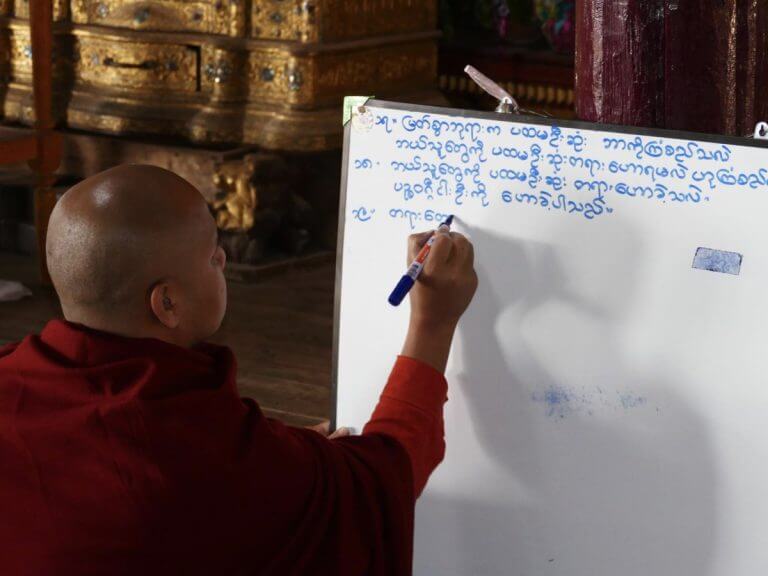 ၁၇။ မြတ်စွာဘုရားက ပထမဦးဆုံး ဘာကိုကြံစည်သလဲ
ဘယ်သူတွေကို ပထမဦးဆုံးတရားဟောရမလဲ ဟုကြံစည်
၁၈။ ဘယ်သူတွေကို ပထမဦးဆုံး တရားဟောခဲ့သလဲ။
ပဉ္စဝဂ္ဂီငါးဦးကို ဟောခဲ့ပါသည်။
၁၉။ တရား